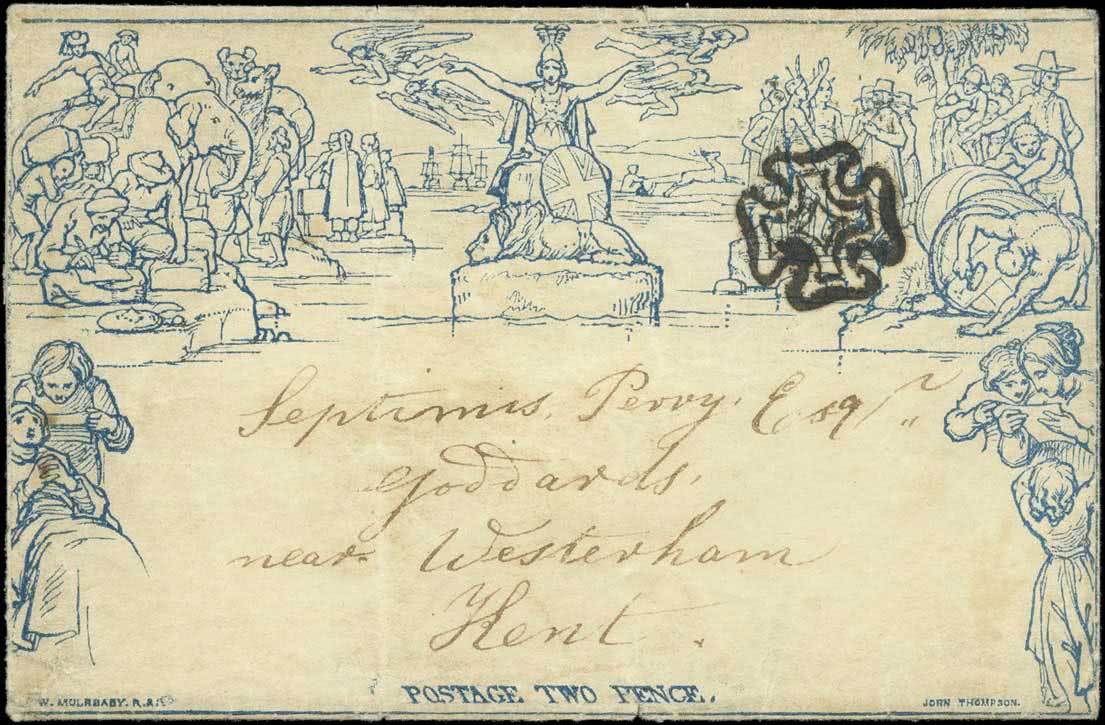 Septimis Perry, Esqr
Goddards,
near Westerham
Kent.
POSTAGE TWO PENCE.
W. MULREADY. R.A.
JOHN THOMPSON.